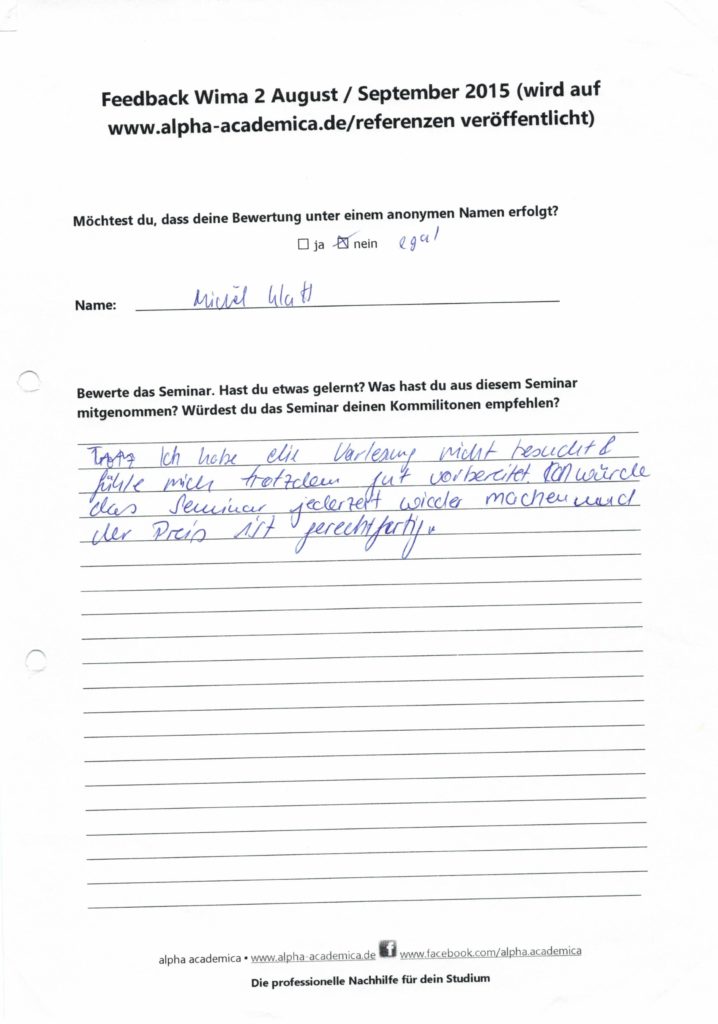 Feedback Wima 2 August / September 2015 (wird auf
www.alpha-academica.de/referenzen veröffentlicht)
Möchtest du, dass deine Bewertung unter einem anonymen Namen erfolgt?
☐ ja ☒ nein egal
Name:
Bewerte das Seminar. Hast du etwas gelernt? Was hast du aus diesem Seminar
mitgenommen? Würdest du das Seminar deinen Kommilitonen empfehlen?
Ich habe die Vorlesung nicht besucht &
fühle mich trotzdem gut vorbereitet. Ich würde
das Seminar jederzeit wieder machen und
der Preis ist gerechtfertig.
alpha academica • www.alpha-academica.de f www.facebook.com/alpha.academica
Die professionelle Nachhilfe für dein Studium